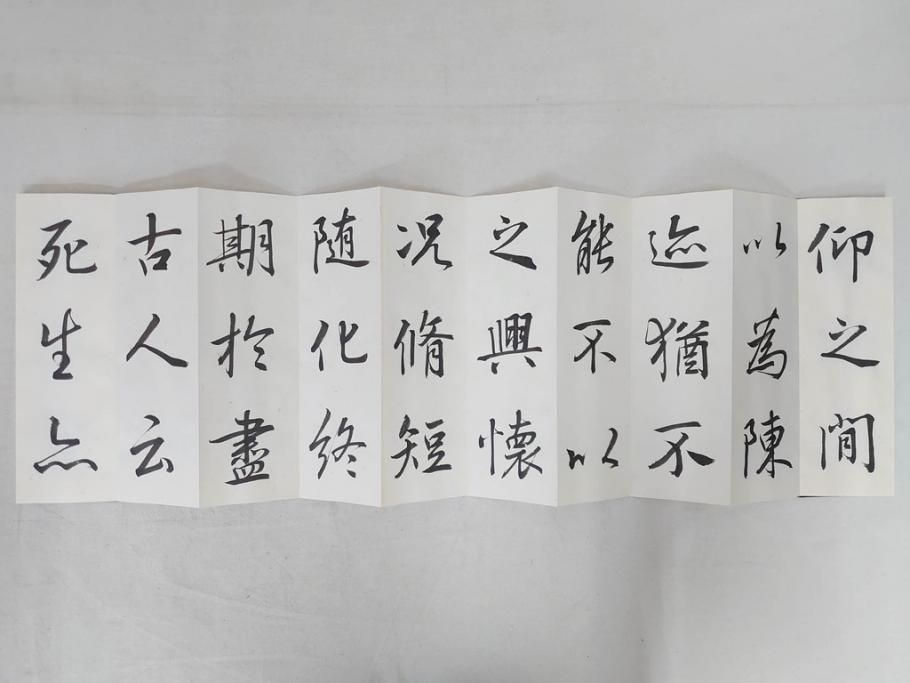 仰之間
以為陳
迹猶不
能不以
之興懷
況脩短
随化終
期於盡
古人云
死生亦